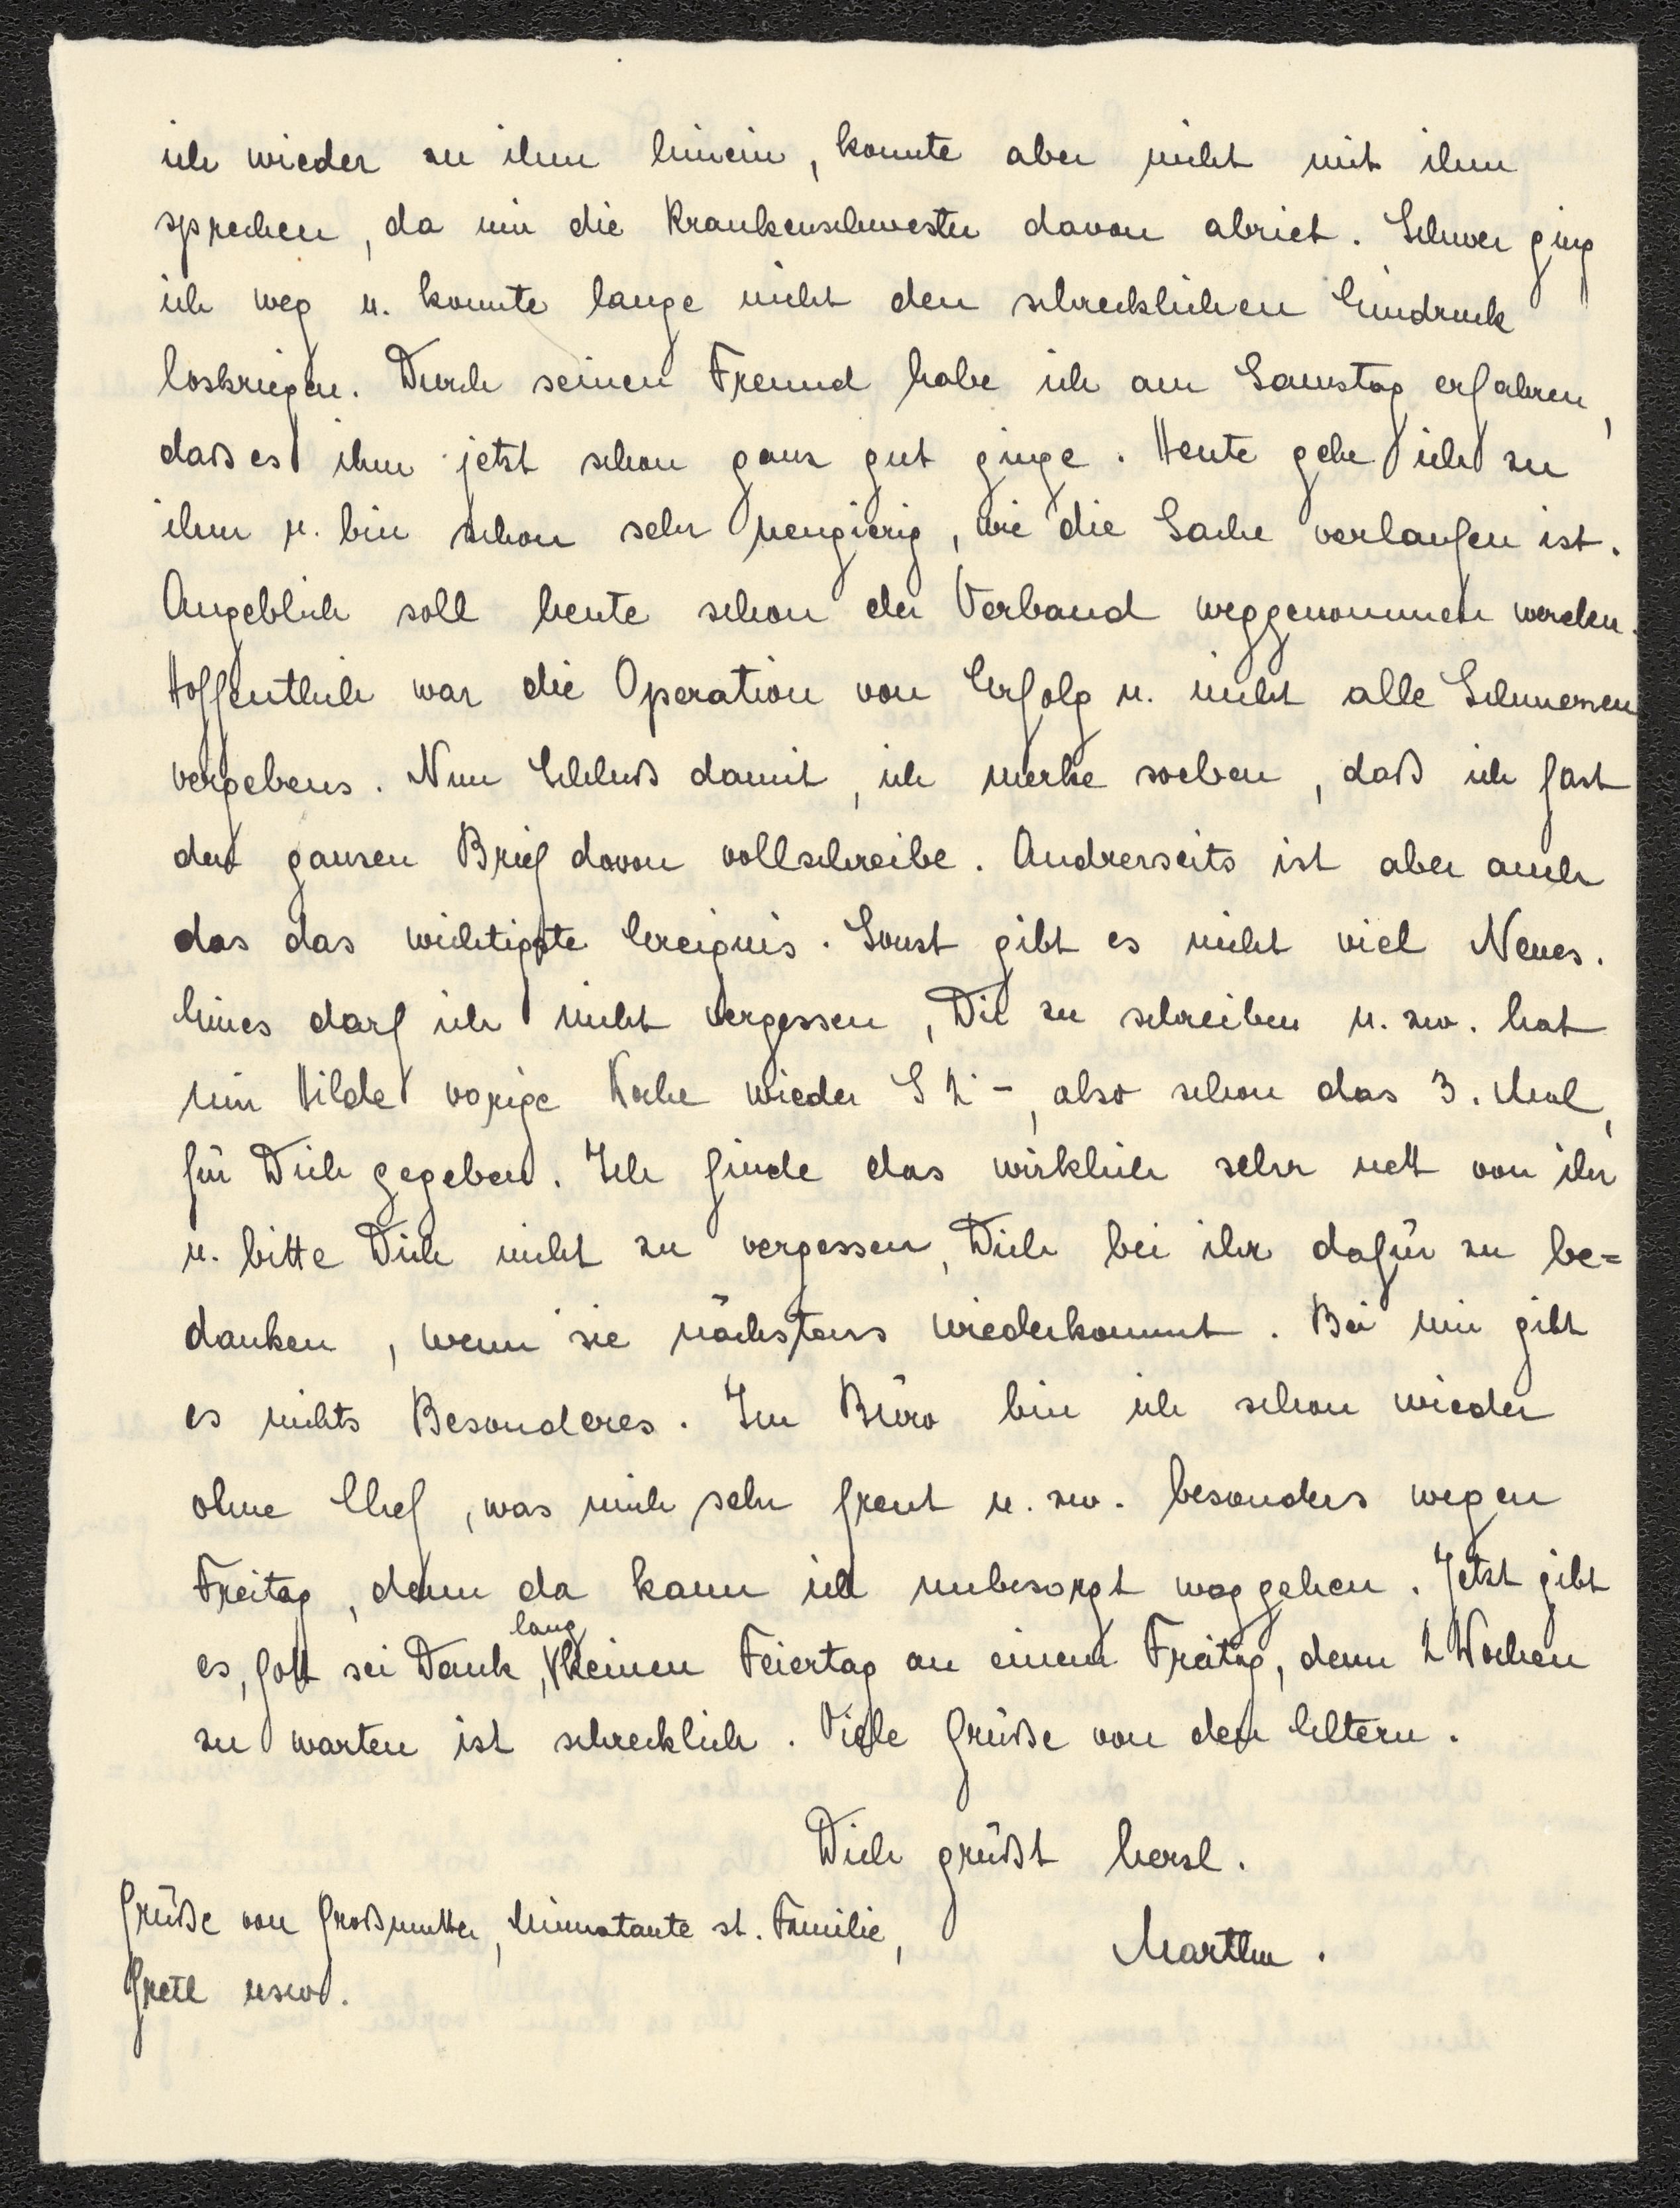 ich wieder zu ihm hinein, konnte aber nicht mit ihm
sprechen, da mir die Krankenschwester davon abriet. Schwer ging
ich weg u. konnte lange nicht den schrecklichen Eindruck
loskriegen. Durch seinen Freund habe ich am Samstag erfahren,
daß es ihm jetzt schon ganz gut ginge. Heute gehe ich zu
ihm u. bin schon sehr neugierig, wie die Sache verlaufen ist.
Angeblich soll heute schon der Verband weggenommen werden.
Hoffentlich war die Operation von Erfolg u. nicht alle Schmerzen
vergebens. Nun Schluß damit, ich merke soeben, daß ich fast
den ganzen Brief davon vollschreibe. Andrerseits ist aber auch
das das wichtigste Ereignis. Sonst gibt es nicht viel Neues.
Eines darf ich nicht vergessen, Dir zu schreiben u. zw. hat
mir Hilde vorige Woche wieder S 2·-, also schon das 3. Mal,
für Dich gegeben. Ich finde das wirklich sehr nett von ihr
u. bitte Dich nicht zu vergessen, Dich bei ihr dafür zu be=
danken, wenn sie nächstens wiederkommt. Bei mir gibt
es nichts Besonderes. Im Büro bin ich schon wieder
ohne Chef, was mich sehr freut u. zw. besonders wegen
Freitag, denn da kann ich unbesorgt weggehen. Jetzt gibt
es, Gott sei Dank, lang keinen Feiertag an einem Freitag, denn 2 Wochen
zu warten ist schrecklich. Viele Grüße von den Eltern.
Dich grüßt herzl.
Martha.
Grüße von Großmutter, Minnatante st. Familie,
Gretl usw.